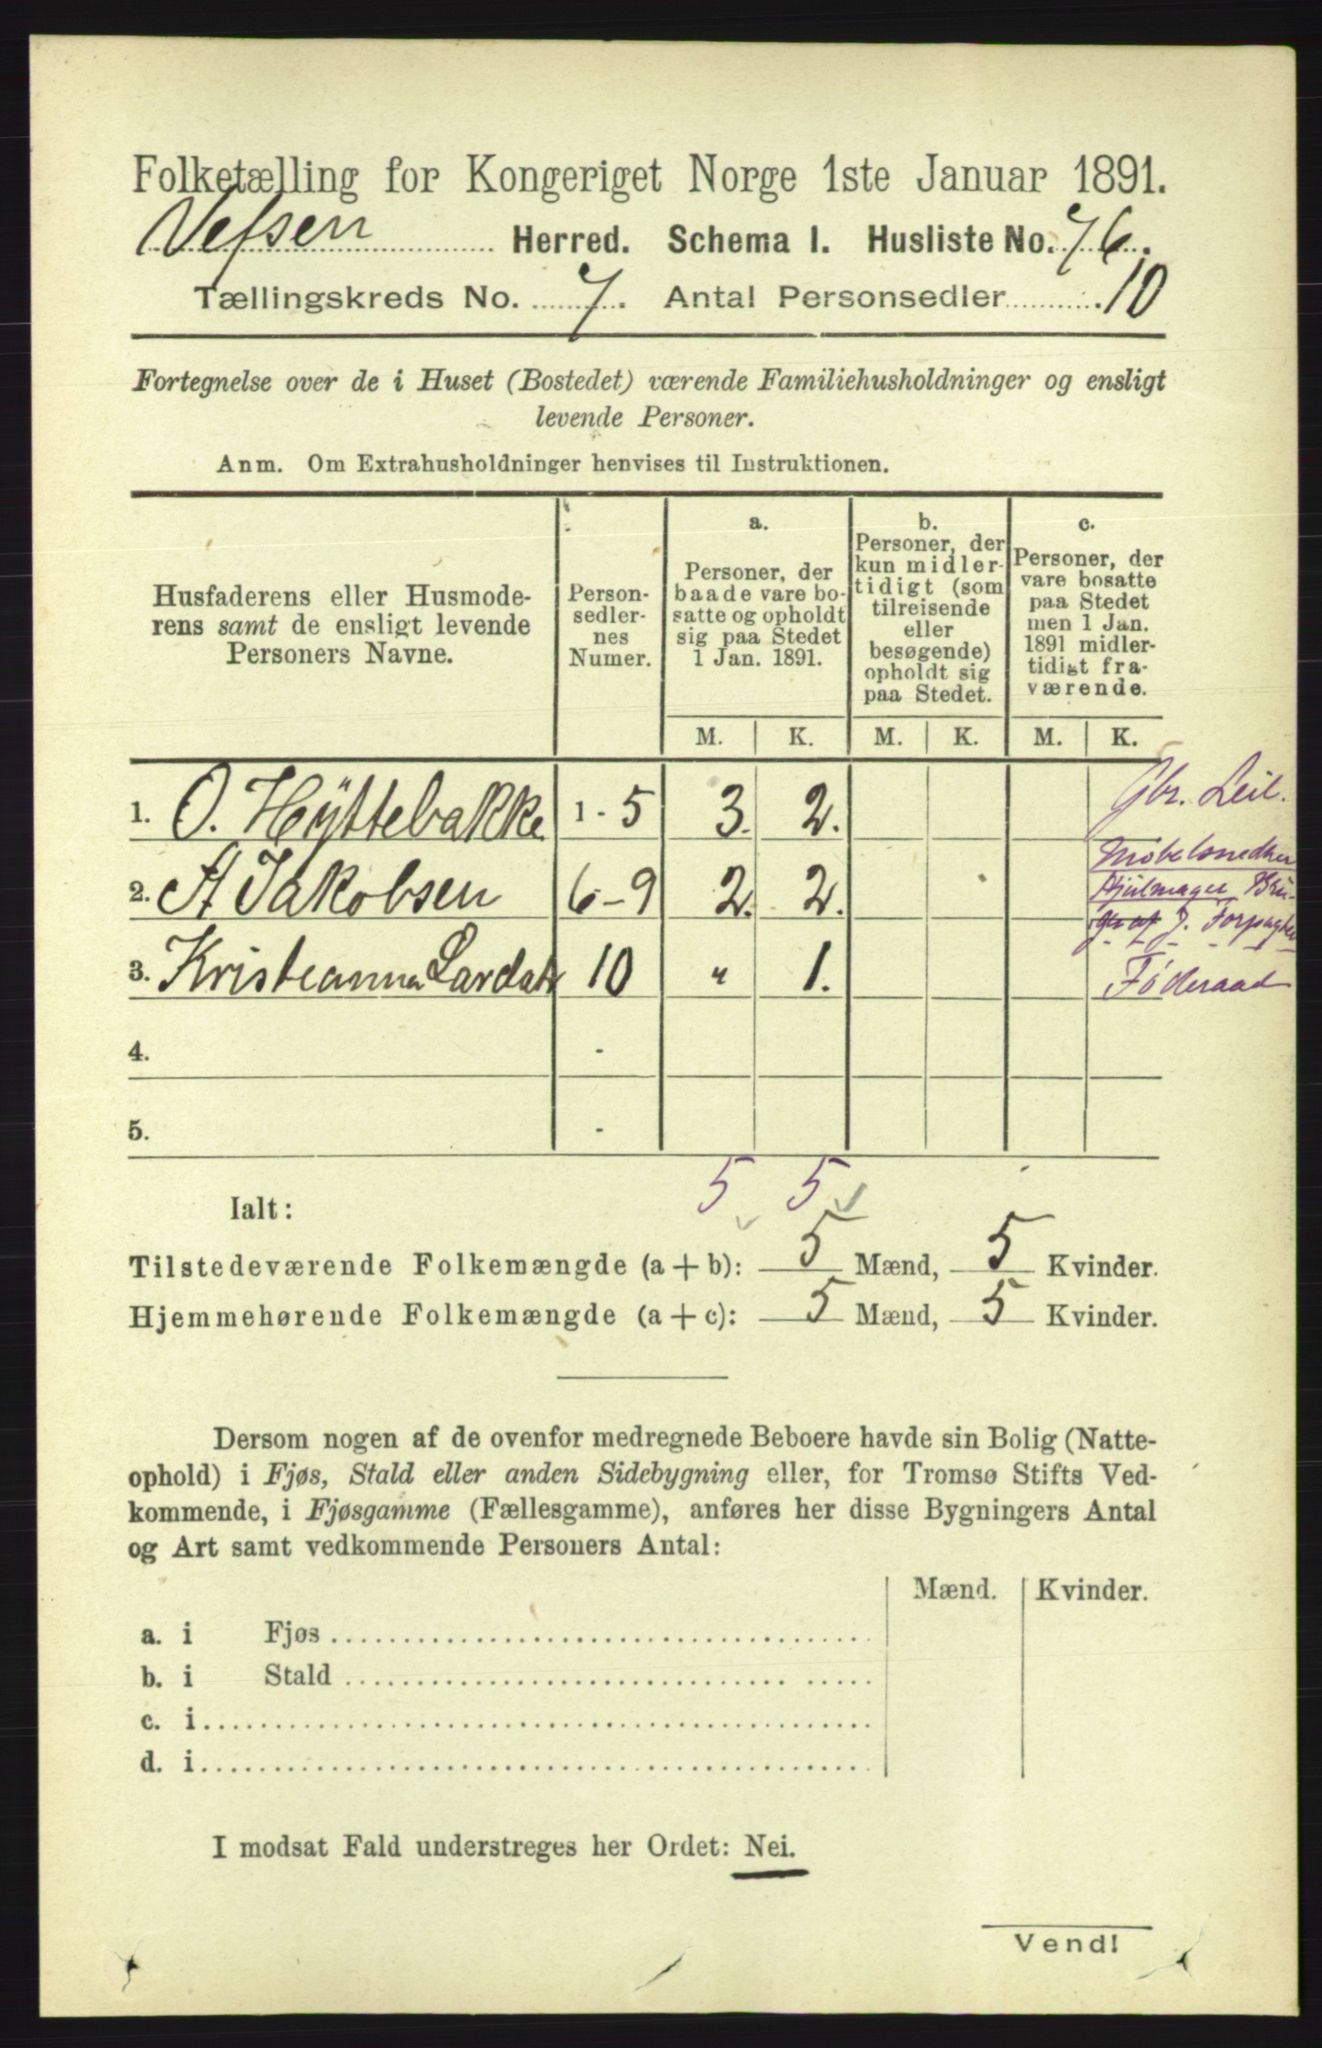 Folketælling for Kongeriget Norge 1ste Januar 1891.
Vefsen Herred. Schema I. Husliste No. 76.
Tællingskreds No. 7. Antal Personsedler 10
Fortegnelse over de i Huset (Bostedet) værende Familiehusholdninger og ensligt
levende Personer.
Anm. Om Extrahusholdninger henvises til Instruktionen.
Husfaderens eller Husmode-
rens samt de ensligt levende
Personers Navne.
Person-
sedler-
nes
Numer.
a.
Personer, der
baade vare bo-
satte og opholdt
sig paa Stedet
1 Jan. 1891.
b.
Personer, der
kun midler-
tidigt (som
tilreisende
eller
besøgende)
opholdt sig
paa Stedet.
c.
Personer, der
vare bosatte
paa Stedet
men 1 Jan.
1891 midler-
tidigt fra-
værende.
M. K. M. K. M. K.
1. O. Hÿttebakke 1 - 5 3. 2. Gbr. Leil.
2. A Jakobsen 6-9 2. 2. Møbelsnedker
Hjulmager
J. Forpagter
3. Kristeanna 10 " 1. Føderaad
4. -
5. -
5 5
Ialt:
Tilstedeværende Folkemængde (a + b): 5 Mænd, 5 Kvinder.
Hjemmehørende Folkemængde (a + c): 5 Mænd, 5 Kvinder.
Dersom nogen af de ovenfor medregnede Beboere havde sin Bolig (Natte-
ophold) i Fjøs, Stald eller anden Sidebygning eller, for Tromsø Stifts Ved-
kommende, i Fjøsgamme (Fællesgamme), anføres her disse Bygningers Antal
og Art samt vedkommende Personers Antal:
Mænd. Kvinder.
a. i Fjøs
b. i Stald
c. i
d. i
I modsat Fald understreges her Ordet: Nei.
Vend!